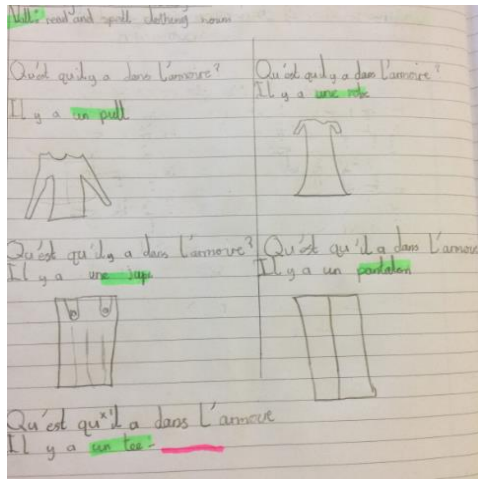 WILL: read and spell clothing nouns
Qu'est qu'il y a dans l'armoire?
Il y a un pull
Qu'est qu'il y a dans l'armoire?
Il y a une robe
Qu'est qu'il y a dans l'armoire?
Il y a une jupe
Qu'est qu'il a dans l'armoue
Il y a un pantalon
Qu'est qu'il a dans L'armoue
Il y a un tee-